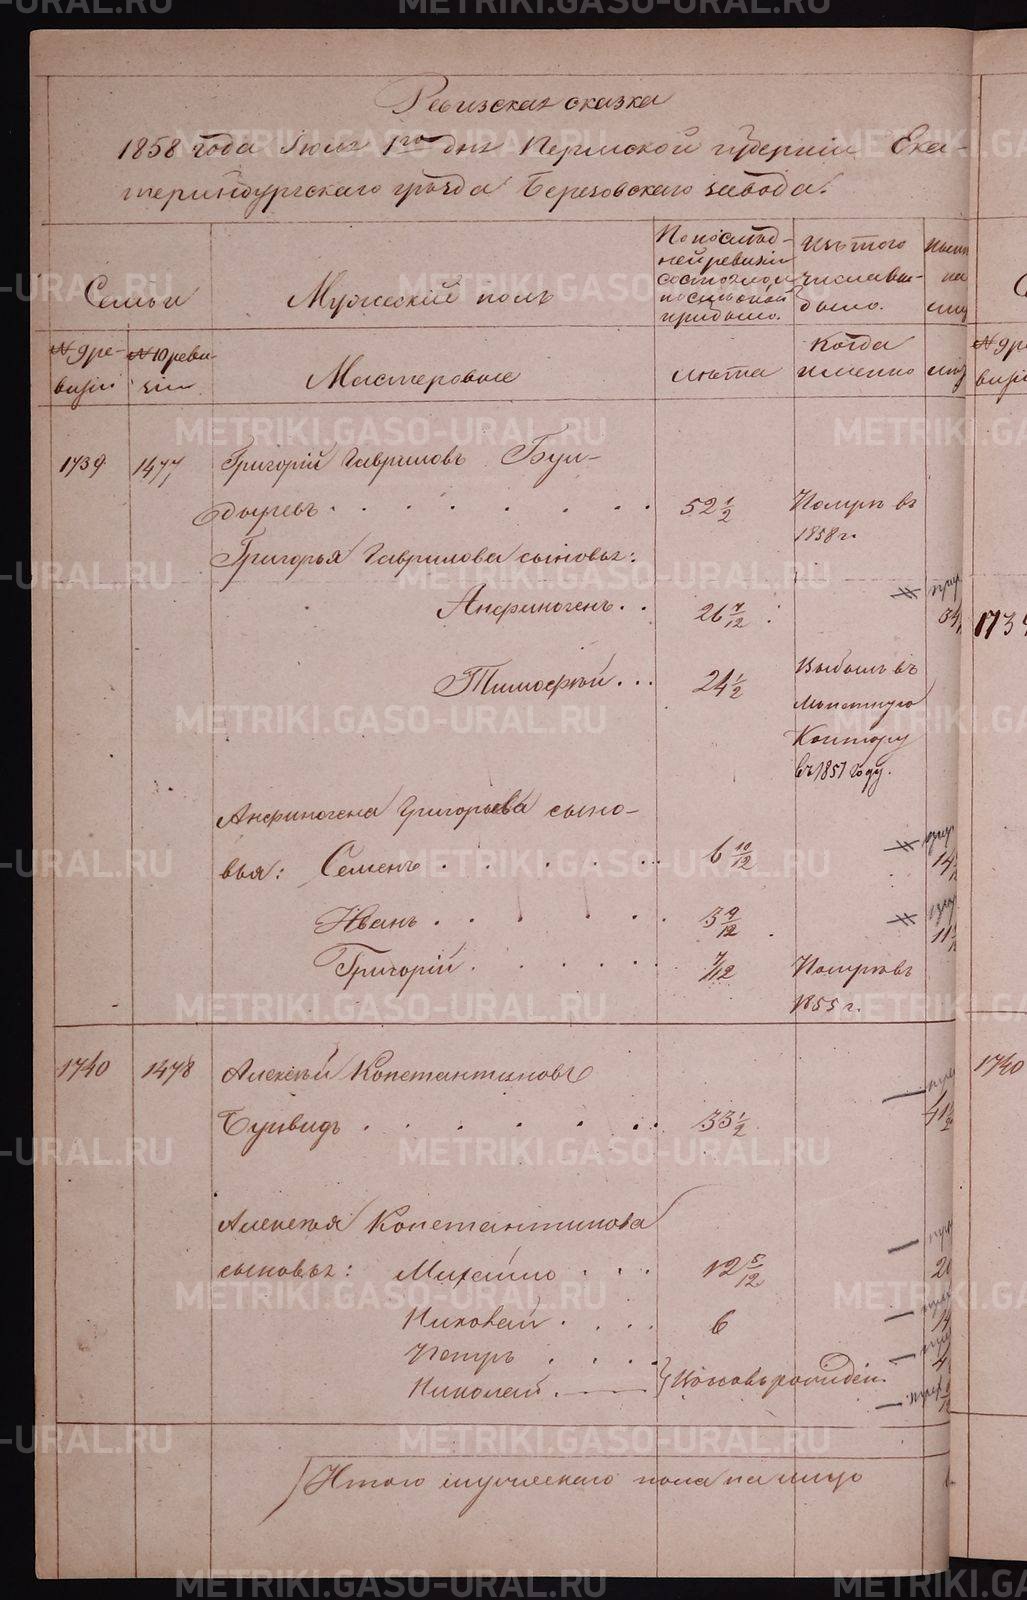 Ревизская сказка
1858 года Iюля 1го дня Пермской губернiи Ека-
теринбургскаго уѣзда Березовскаго завода.
Семьи
Мужескiй полъ
По послѣд-
ней ревизiи
состояло и
послѣ оной
прибыло.
Изъ того
числа вы-
было.
Нынѣ
на
лицо
№ 9 ре-
визiи
№ 10 реви-
зiи
Мастеровые
лѣта
Когда
именно
лѣта
№ 9 ре
визiи
1739.
1477
Григорiй Гавриловъ Бул-
дыревъ
52 1/2
Померъ въ
1858 г.
Григорья Гаврилова сыновья:
Анфиногенъ
26 7/12
34
1739
Тимофѣй
24 1/2
Выбылъ въ
Монетную
Контору
въ 1851 году.
Анфиногена Григорьева сыно-
вья: Семенъ
6 10/12
14
Иванъ
3 9/12
11
Григорiй
7/12
Померъ въ
1855 г.
1740
1478
Алексѣй Константиновъ
1740
Буйвидъ
33 1/2
41 1/2
Алексѣя Константинова
сыновья: Михайло
12 5/12
20
Николай
6
14
Петръ
4
Николай
} вновь рожден.
Итого мужескаго пола на лицо
METRIKI.GASO-URAL.RU